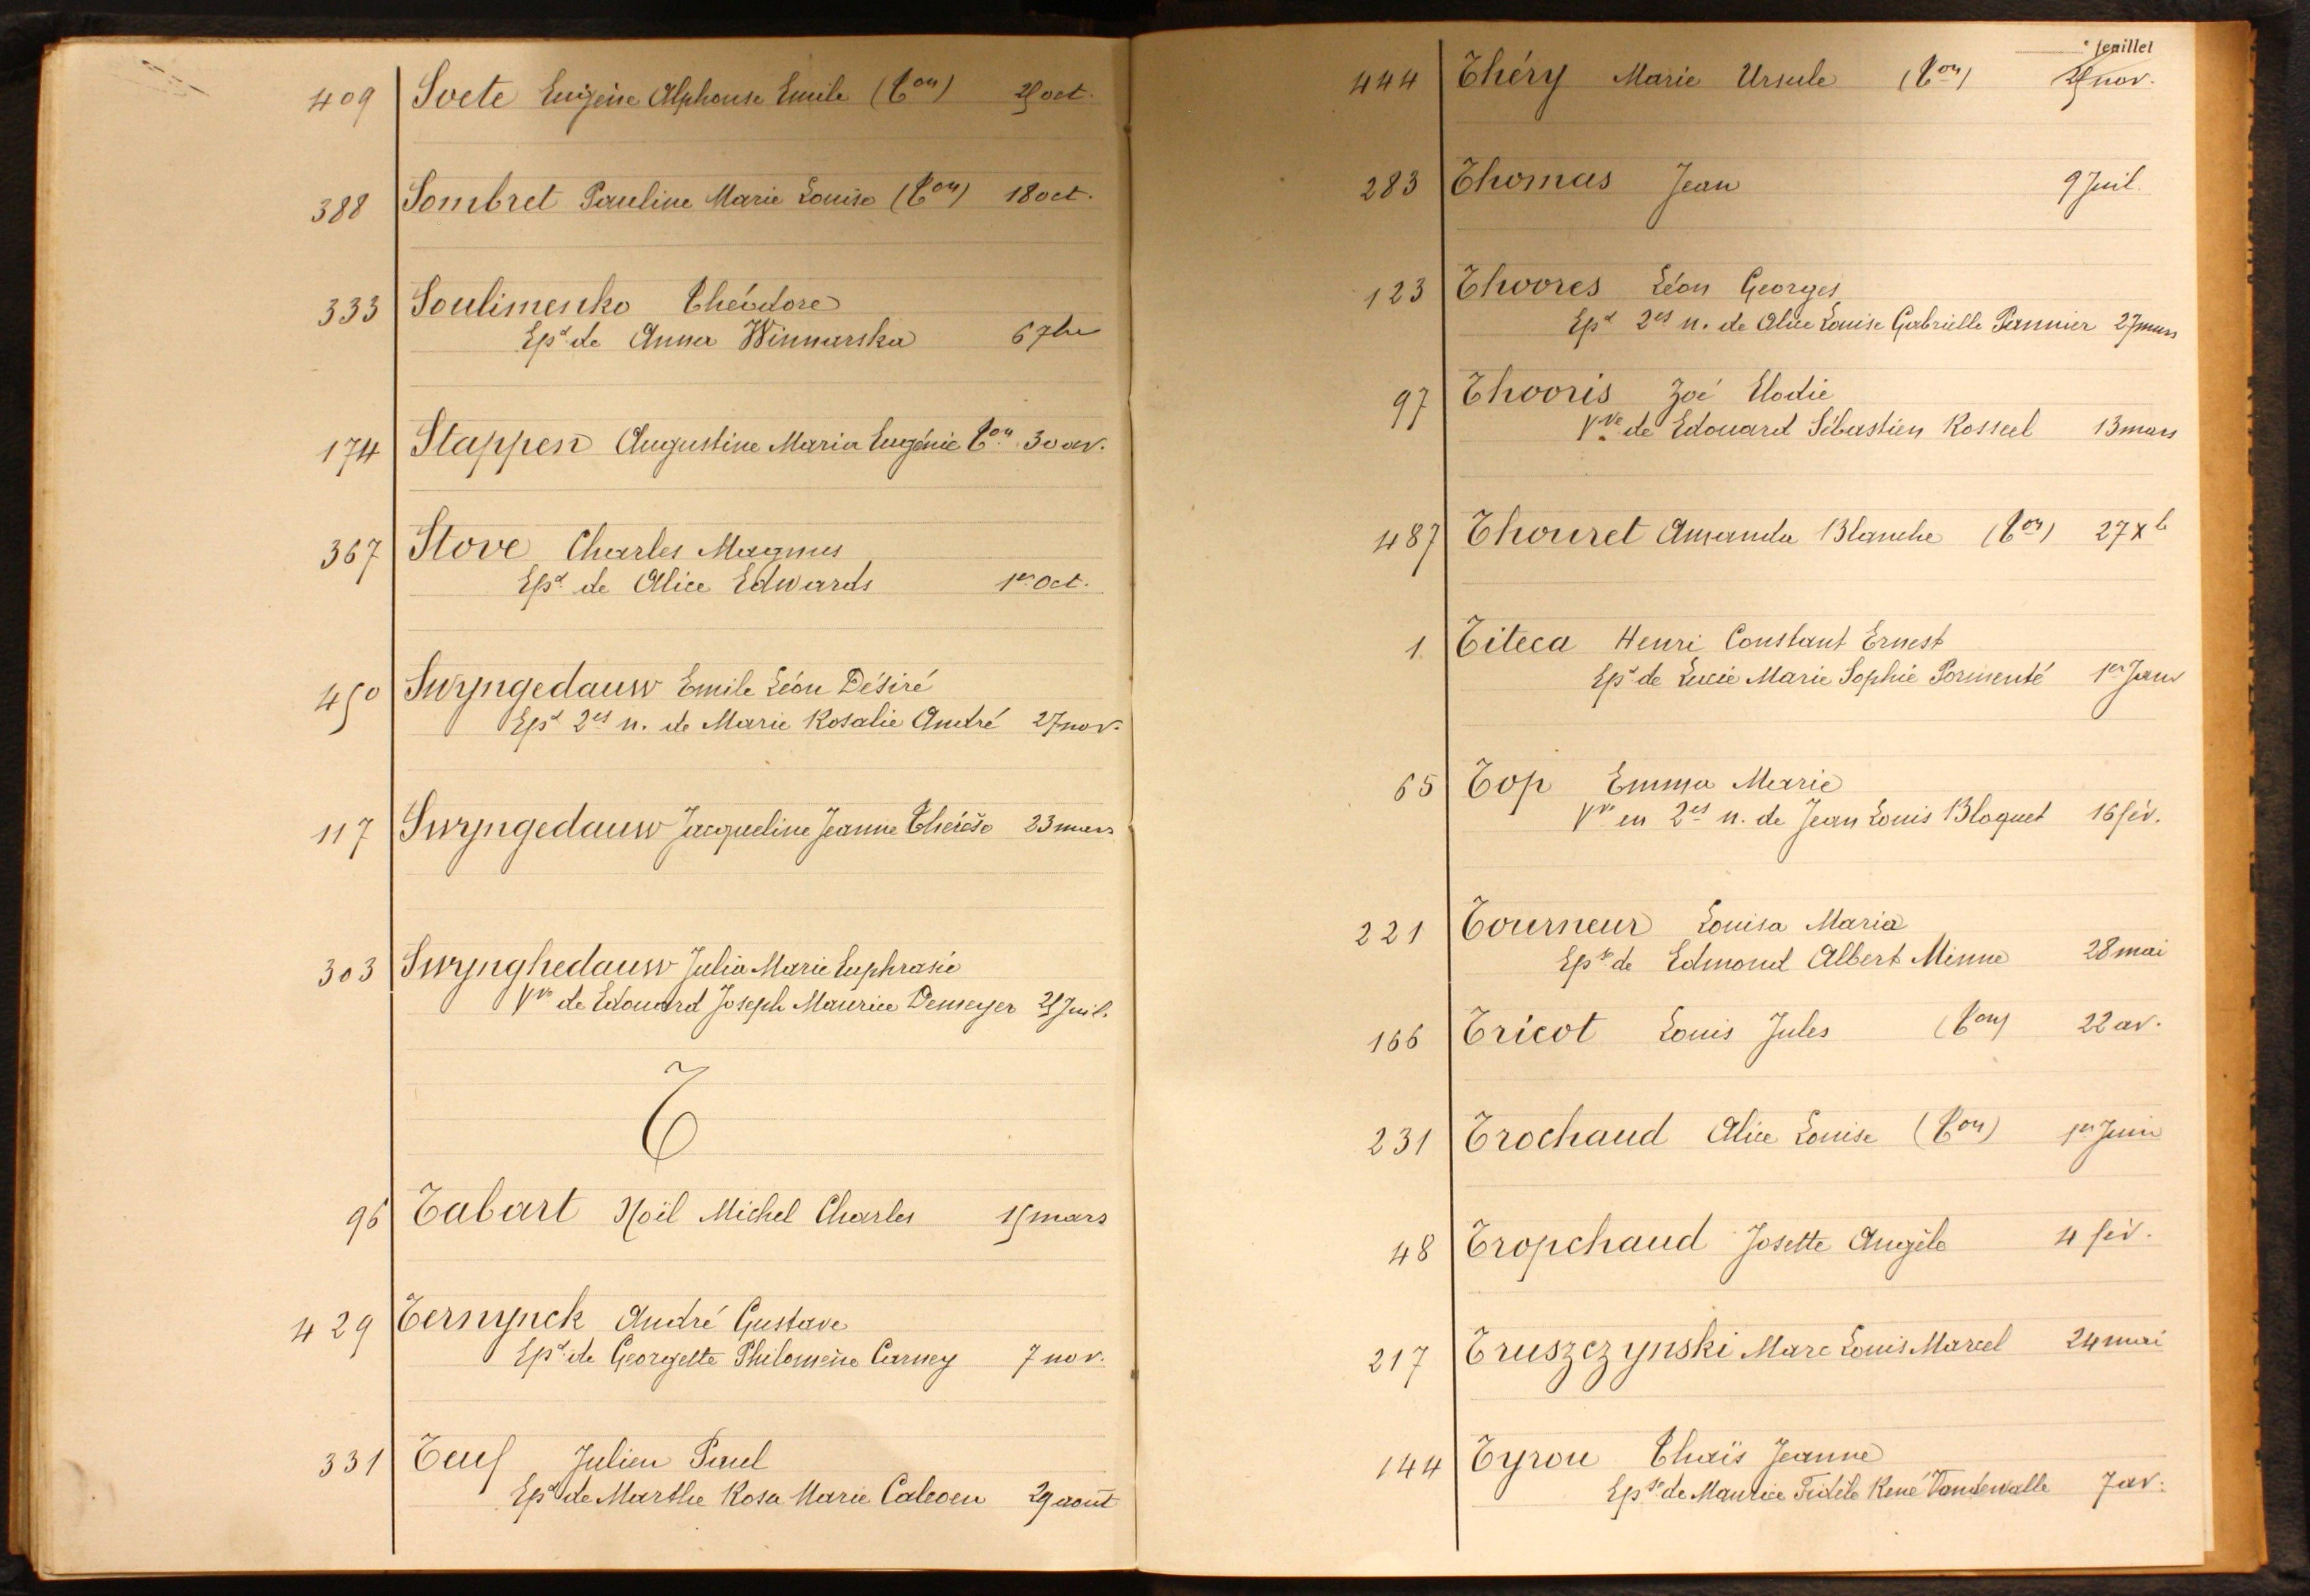 409 Soete Eugène Alphonse Emile (Con) 25 oct.
388 Sombret Pauline Marie Louise (Con) 18 oct.
333 Soulimenko Théodore
Epx de Anna Winnarska 6 7bre
174 Stappen Augustine Maria Eugénie Con 30 av.
367 Stove Charles Magnus
Epx de Alice Edwards 1er Oct.
450 Swyngedauw Emile Léon Désiré
Epx 2es n. de Marie Rosalie André 27 nov.
117 Swyngedauw Jacqueline Jeanne Thérèse 23 mars
303 Swynghedauw Julia Marie Euphrasie
Vve de Edouard Joseph Maurice Demeyer 25 Juil.
T
96 Tabart Noël Michel Charles 15 mars
429 Ternynck André Gustave
Epx de Georgette Philomène Carney 7 nov.
331 Teuf Julien Paul
Epx de Marthe Rosa Marie Calcoen 29 août
e feuillet
444 Théry Marie Ursule (Con) 25 nov.
283 Thomas Jean 9 Juil.
123 Thoores Léon Georges
Epx 2es n. de Alice Louise Gabrielle Pannier 27 mars
97 Thooris Zoé Elodie
Vve de Edouard Sébastien Rosseel 13 mars
487 Thouret Amanda Blanche (Con) 27 Xb
1 Titeca Henri Constant Ernest
Epx de Lucie Marie Sophie Pormenté 1er Janv
65 Top Emma Marie
Vve en 2es n. de Jean Louis Bloquet 16 fév.
221 Tourneur Louisa Maria
Epse de Edmond Albert Minne 28 mai
166 Tricot Louis Jules (Con) 22 av.
231 Trochaud Alice Louise (Con) 1er Juin
48 Tropchaud Josette Angèle 4 fév.
217 Truszczynski Marc Louis Marcel 24 mai
144 Tyrou Thaïs Jeanne
Epse de Maurice Fidèle René Vandewalle 7 av.